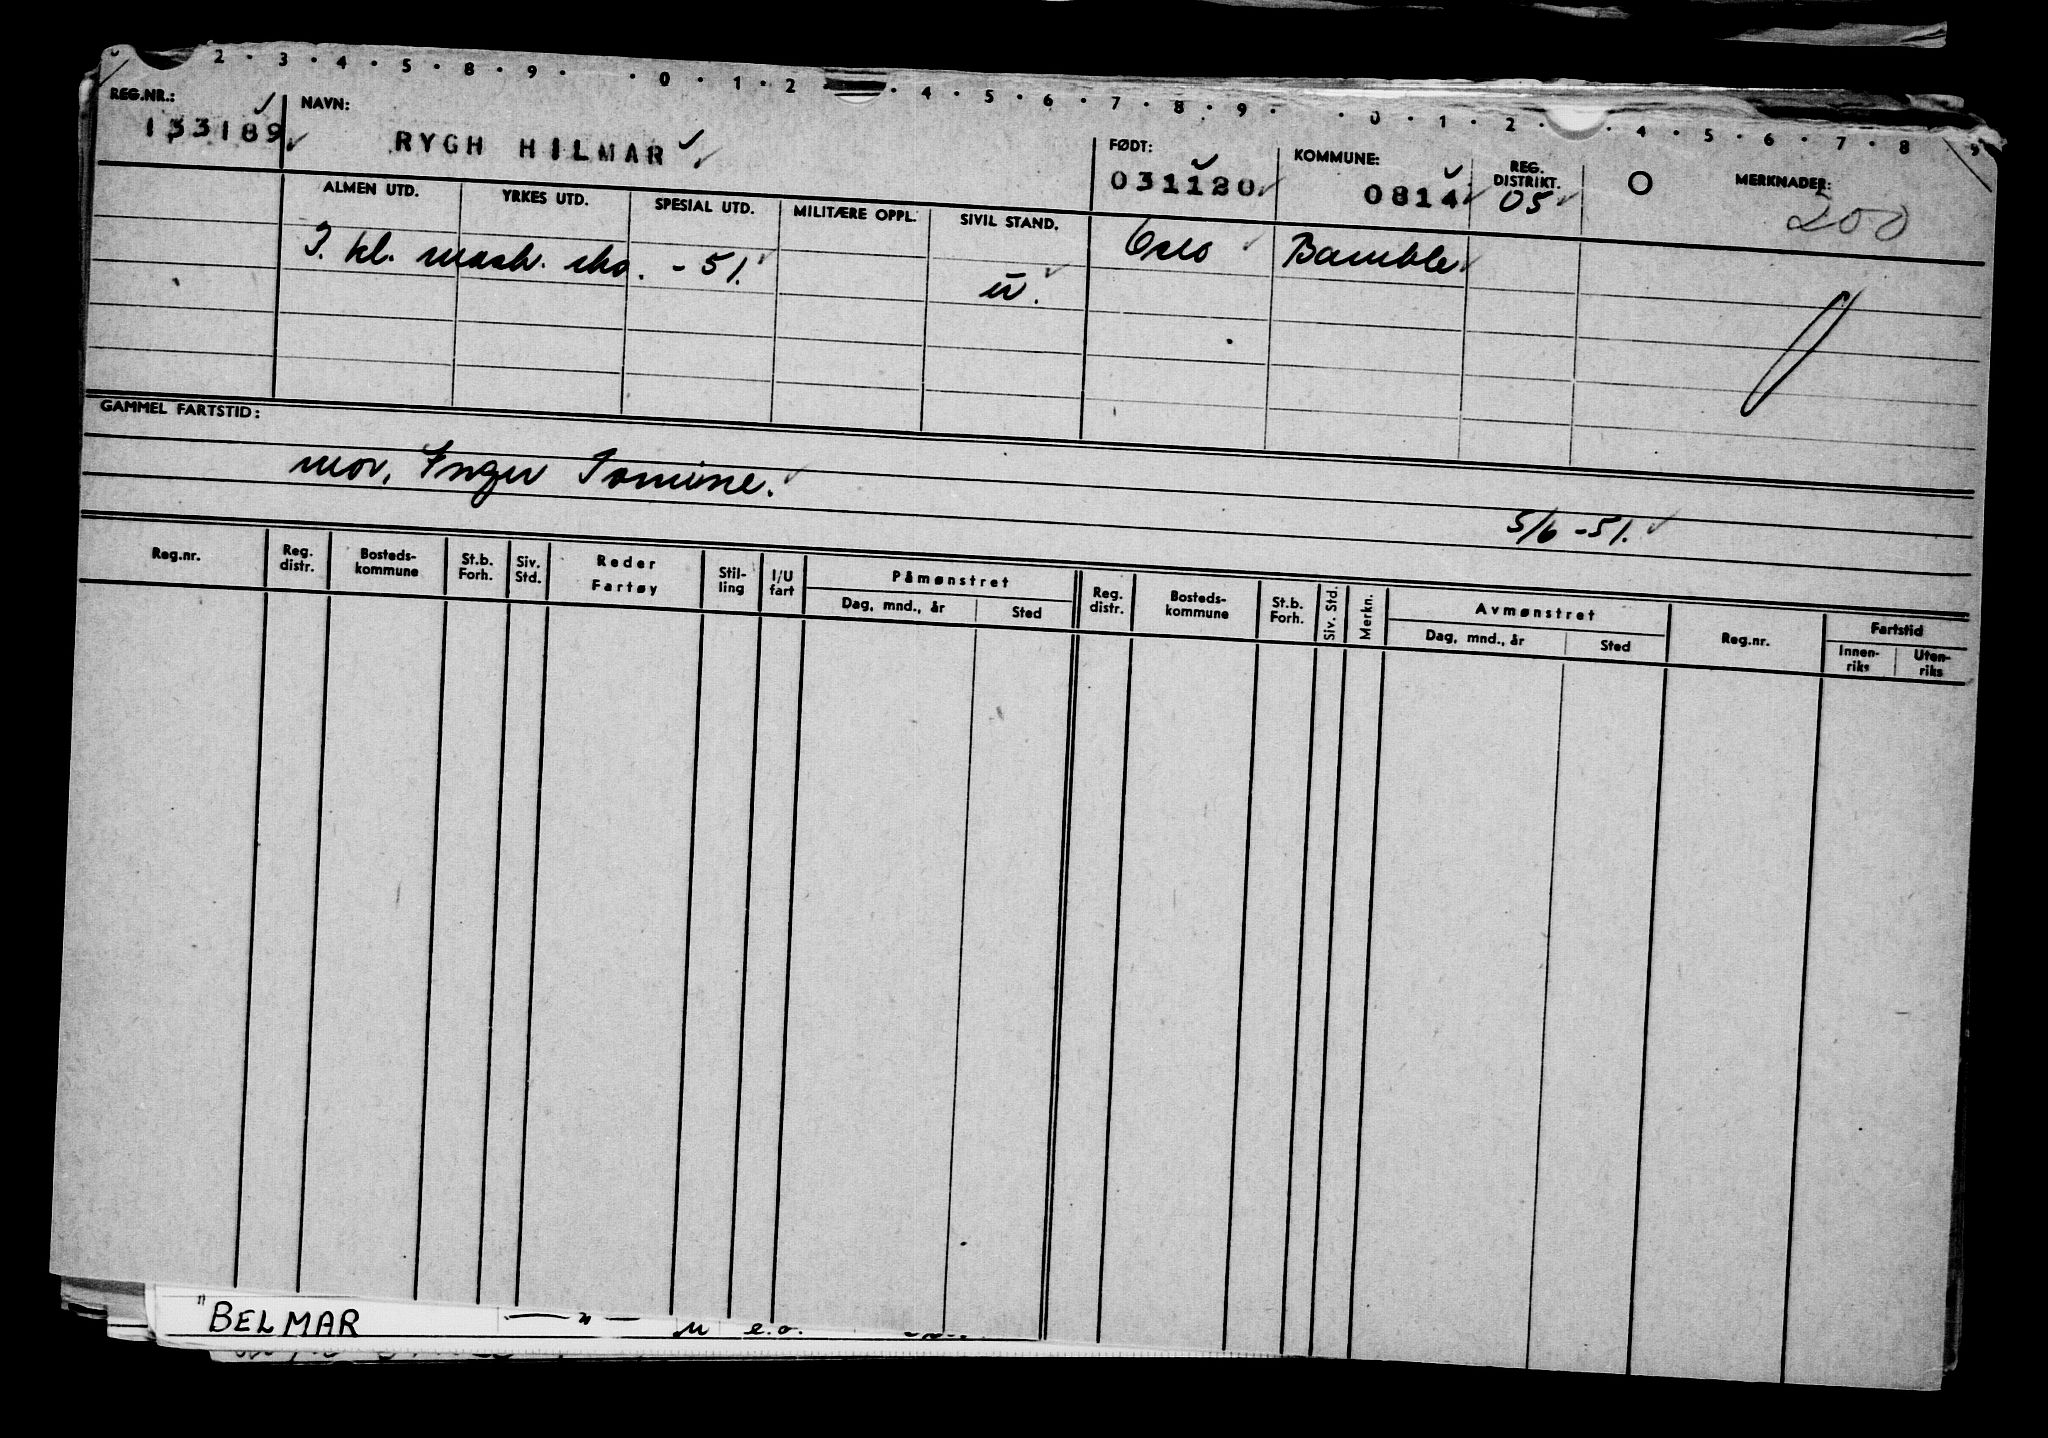 2 · 3 · 4 · 5 · 8 · 9 · · 0 · 1 · 2 · 4 · 5 · 6 · 7 · 8 · 9 · · 0 · 1 · 2 · 4 · 5 · 6 · 7 · 8 9
REG.NR.: NAVN:
133189 RYGH HILMAR
FØDT: KOMMUNE: REG. DISTRIKT. MERKNADER:
031120 0814 05 O 200
ALMEN UTD. YRKES UTD. SPESIAL UTD. MILITÆRE OPPL. SIVIL STAND.
I. kl. mask. sko. - 51. u. Oslo Bamble
GAMMEL FARTSTID:
mor, Inger Jomine.
5/6 -51.
Reg.nr. Reg. distr. Bosteds- kommune St.b. Forh. Siv. Std. Reder Fartøy Stil- ling I/U fart Påmønstret Dag, mnd., år Sted Reg. distr. Bosteds- kommune St.b. Forh. Siv. Std. Merkn. Avmønstret Dag, mnd., år Sted Reg.nr. Fartstid Innen- riks Uten- riks
"BELMAR — " — M e.o.